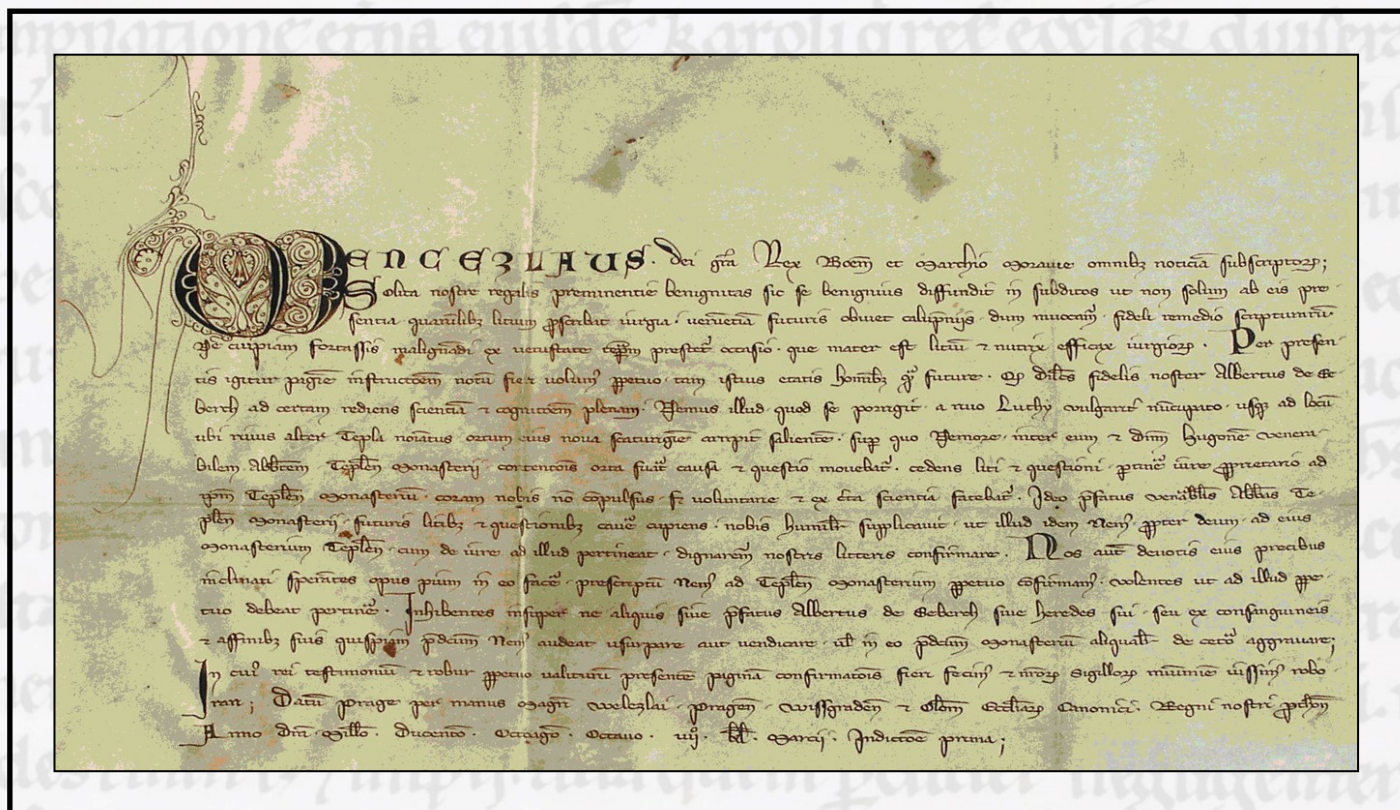 WENCEZLAUS. dei gra Rex Boem et Marchio Moravie omnibz noticiã subscriptorꝝ;
Solita nostre regalis preminentie benignitas sic se benignius diffundit in subditos ut non solum ab eis pre
sentia quamlibz litium ꝓscribat iurgia. futuris obviet calũpnijs. dum fideli remedio scripturarũ
Ne cuipiam fortassis malignãdi ex vetustate prestet occasio. que mater est litiũ ⁊ nutrix efficax iurgiorꝝ. Per presen
tis igitur pagine notũ fieri volumꝰ ꝑpetuo tam istius etatis hominibz future. fidelis noster Albertus de Se
berch ad certam rediens scientiã ⁊ cognitoem plenam. Nemus illud quod se porrigit a rivo Luthy vulgarit nũcupato. usqꝫ ad locũ
ubi rivus alter Tepla noiatus ortum eius nova scaturigie arripit saliente. sup quo Nemore. inter eum ⁊ dnm Hugone venera
bilem Abbtem Teplen Monasterij. orta causa ⁊ questio movebat. cedens liti ⁊ questioni iure ꝓprietario ad
ipm Teplen Monasteriũ. coram nobis nõ cõpulsus. voluntarie ⁊ ex scientia fatebat. Ideo pfatus Abbas Te
plen Monasterij. futuris litibz ⁊ questionibz cupiens. nobis humilit supplicavit. ut illud idem Nemꝰ ꝓpter deum. ad eius
Monasterium Teplen. cum de iure ad illud pertineat. dignaremꝰ nostris litteris confirmare. Nos aut devotis eius precibus
inclinati sperãtes opus pium in eo face. prescriptũ Nemꝰ ad Teplen Monasterium ꝑpetuo cõfirmamꝰ. volentes ut ad illud ꝑpe
tuo debeat pertine. Inhibentes insuper ne aliquis sive pfatus Albertus de Seberch sive heredes sui. seu ex consanguineis
⁊ affinibz suis quispiam pdcum Nemꝰ audeat usurpare aut vendicare. ul in eo pdcum Monasteriũ aliqualit de cetero aggravare;
In cuiꝰ rei testimoniũ ⁊ robur ꝑpetuo valiturũ presente paginã confirmatois fieri fecimꝰ ⁊ nrorꝝ Sigillorꝝ munimie iussimꝰ robo
rari; Datũ Prage per manus Magri Welczlai. Pragen. Wissgraden ⁊ Canonici. Regni nostri
Anno Dni. Millo. Ducento. Octuago. Octavo. kl. Marcij. Indictoe prima;